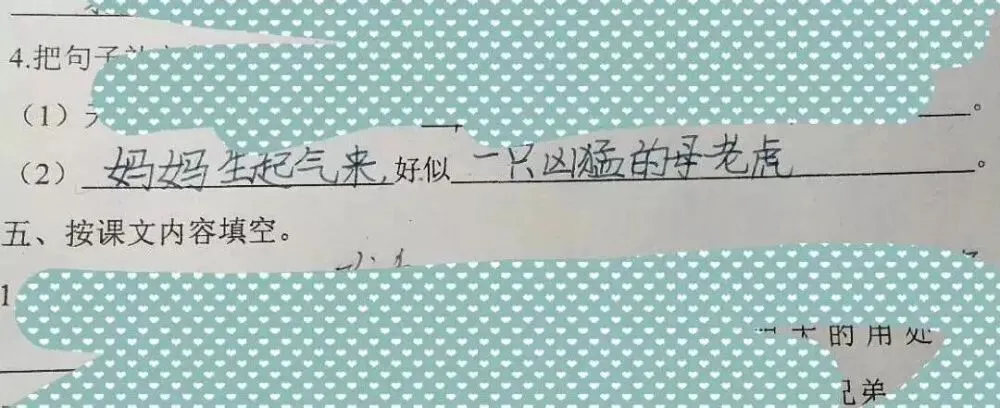 4.把句子
（1）
（2）妈妈生起气来,好似一只凶猛的母老虎。
五、按课文内容填空。
1
的用处
弟